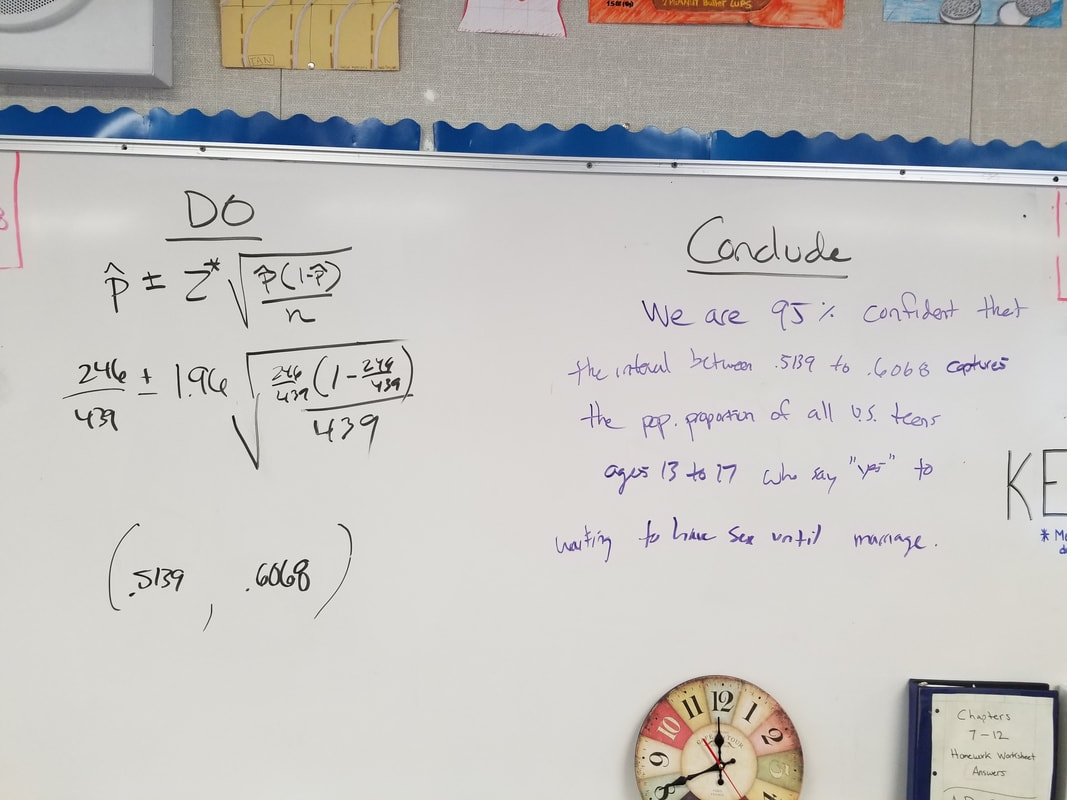 TAN
PEANUT Butter CUPS
DO
p̂ ± Z* √(p̂(1-p̂)/n)
246/439 ± 1.96 √(246/439(1-246/439)/439)
(.5139, .6068)
Conclude
We are 95% confident that
the interval between .5139 to .6068 captures
the pop. proportion of all U.S. teens
ages 13 to 17 who say "yes" to
waiting to have sex until marriage.
KE
* M
12
1
2
3
4
8
9
10
11
Chapters
7-12
Homework Worksheet
Answers